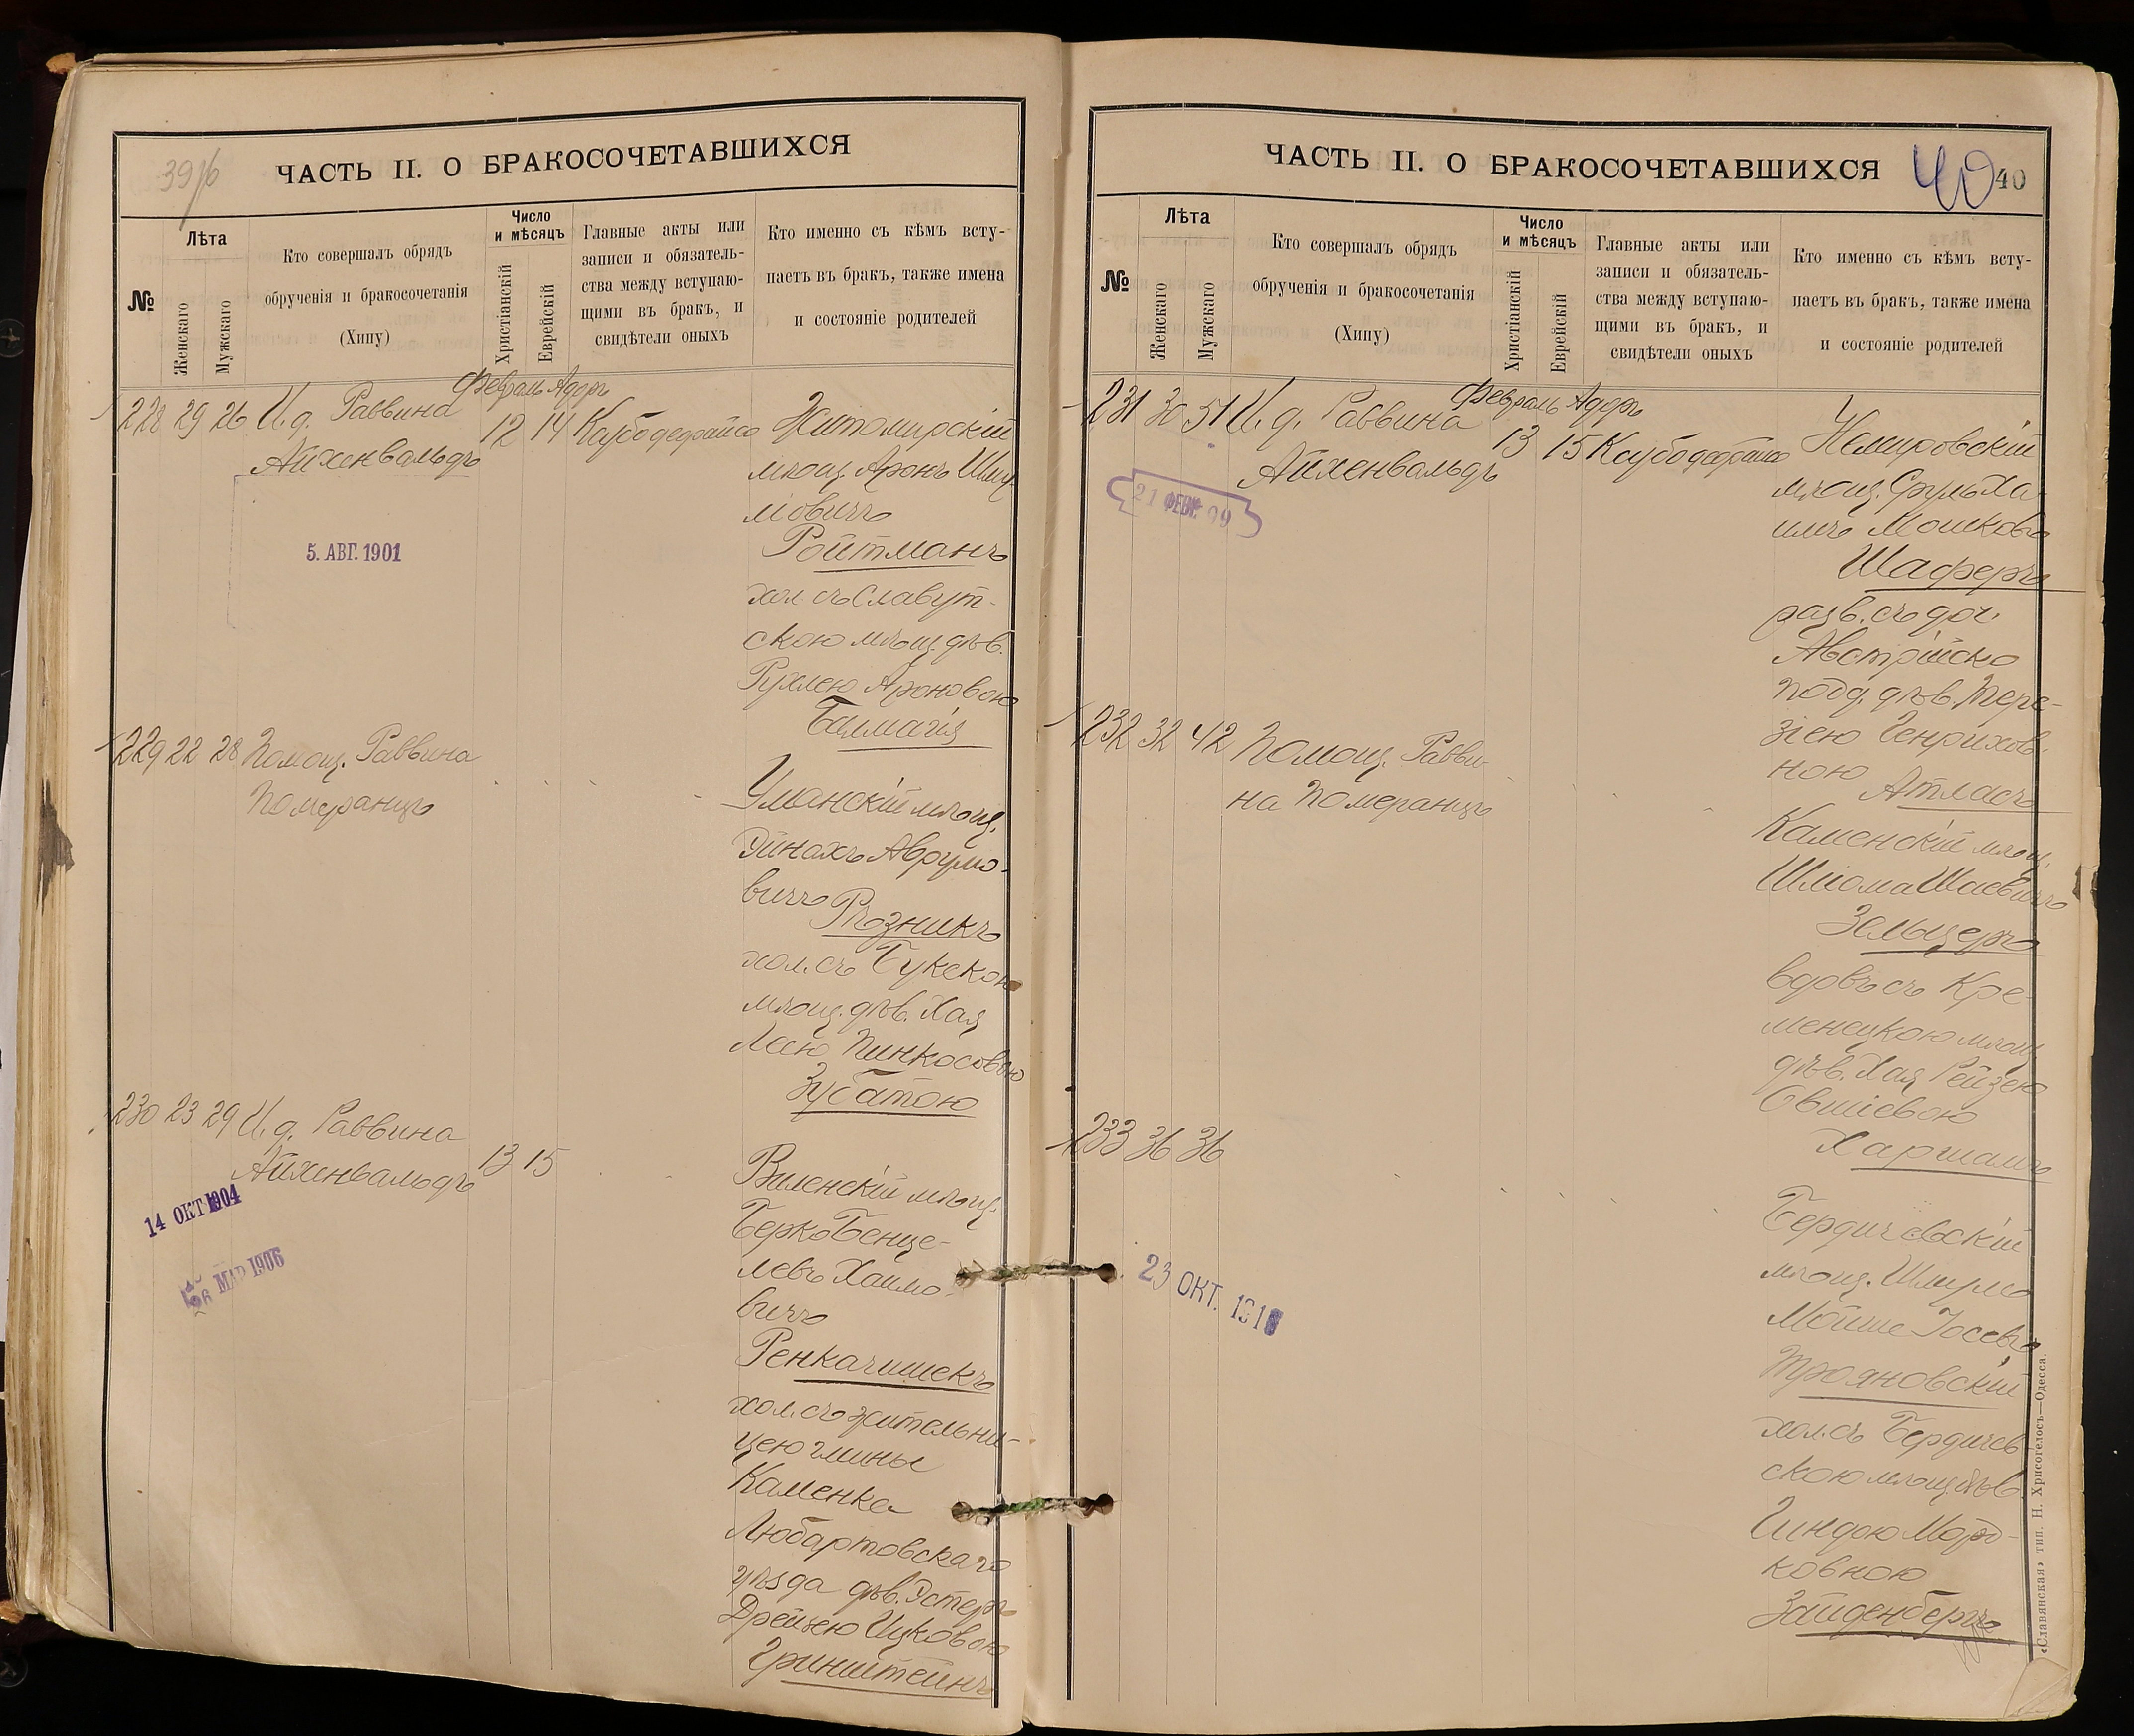 39/б
ЧАСТЬ II. О БРАКОСОЧЕТАВШИХСЯ
№
Лѣта
Женскаго
Мужскаго
Кто совершалъ обрядъ
обрученія и бракосочетанія
(Хипу)
Число
и мѣсяцъ
Христіанскій
Еврейскій
Главные акты или
записи и обязатель-
ства между вступаю-
щими въ бракъ, и
свидѣтели оныхъ
Кто именно съ кѣмъ всту-
паетъ въ бракъ, также имена
и состояніе родителей
Февраль Адаръ
228 29 26 И. д. Раввина 12 14
Айхенвальдъ
5. АВГ. 1901
Житомирскій
мѣщ. Аронъ Шму-
Ройтманъ
хол. съ Славут-
скою мѣщ. дѣв.
Рухлею Ароновою
229 22 28 Помощ. Раввина
Померанцъ
Уманскій мѣщ.
Эйнахъ Аврумо-
вичъ
Рѣзникъ
хол. съ Букскою
мѣщ. дѣв. Хая
Леею Пинкосовою
Зубатою
230 23 29 И. д. Раввина
Айхенвальдъ 13 15
14 ОКТ 1904
МАР 1906
Виленскій мѣщ.
Берко Бенце-
левъ Хаимо-
вичъ
Ренкачишекъ
хол. съ жительни-
цею гмины
Каменка
Любартовскаго
уѣзда дѣв. Эстеръ
Дрейзею Ицковою
Гринштейнъ
ЧАСТЬ II. О БРАКОСОЧЕТАВШИХСЯ
40 40
№
Лѣта
Женскаго
Мужскаго
Кто совершалъ обрядъ
обрученія и бракосочетанія
(Хипу)
Число
и мѣсяцъ
Христіанскій
Еврейскій
Главные акты или
записи и обязатель-
ства между вступаю-
щими въ бракъ, и
свидѣтели оныхъ
Кто именно съ кѣмъ всту-
паетъ въ бракъ, также имена
и состояніе родителей
Февраль Адаръ
231 30 51 И. д. Раввина 13 15
Айхенвальдъ
21 ФЕВ. 99
Немировскій
мѣщ. Сруль Ха-
имъ Мошковъ
Шаферъ
разв. съ доч.
Австрійско
подд. дѣв. Тере-
зіею Генрихов-
ною
Атласъ
232 32 42 Помощ. Рабви-
на Померанцъ
Каменскій мѣщ.
Шлиома Шаевичъ
Зельцеръ
вдовъ съ Кре-
менецкою мѣщ.
дѣв. Хая Рейзею
Овшіевою
233 36 36
23 ОКТ. 191
Бердичевскій
мѣщ. Шмуль
Мойше Іосевъ
Трояновскій
хол. съ Бердичев-
скою мѣщ. дѣв.
Гиндою Морд-
ковною
Зайденбергъ
«Славянская» тип. Н. Хрисогелосъ—Одесса.